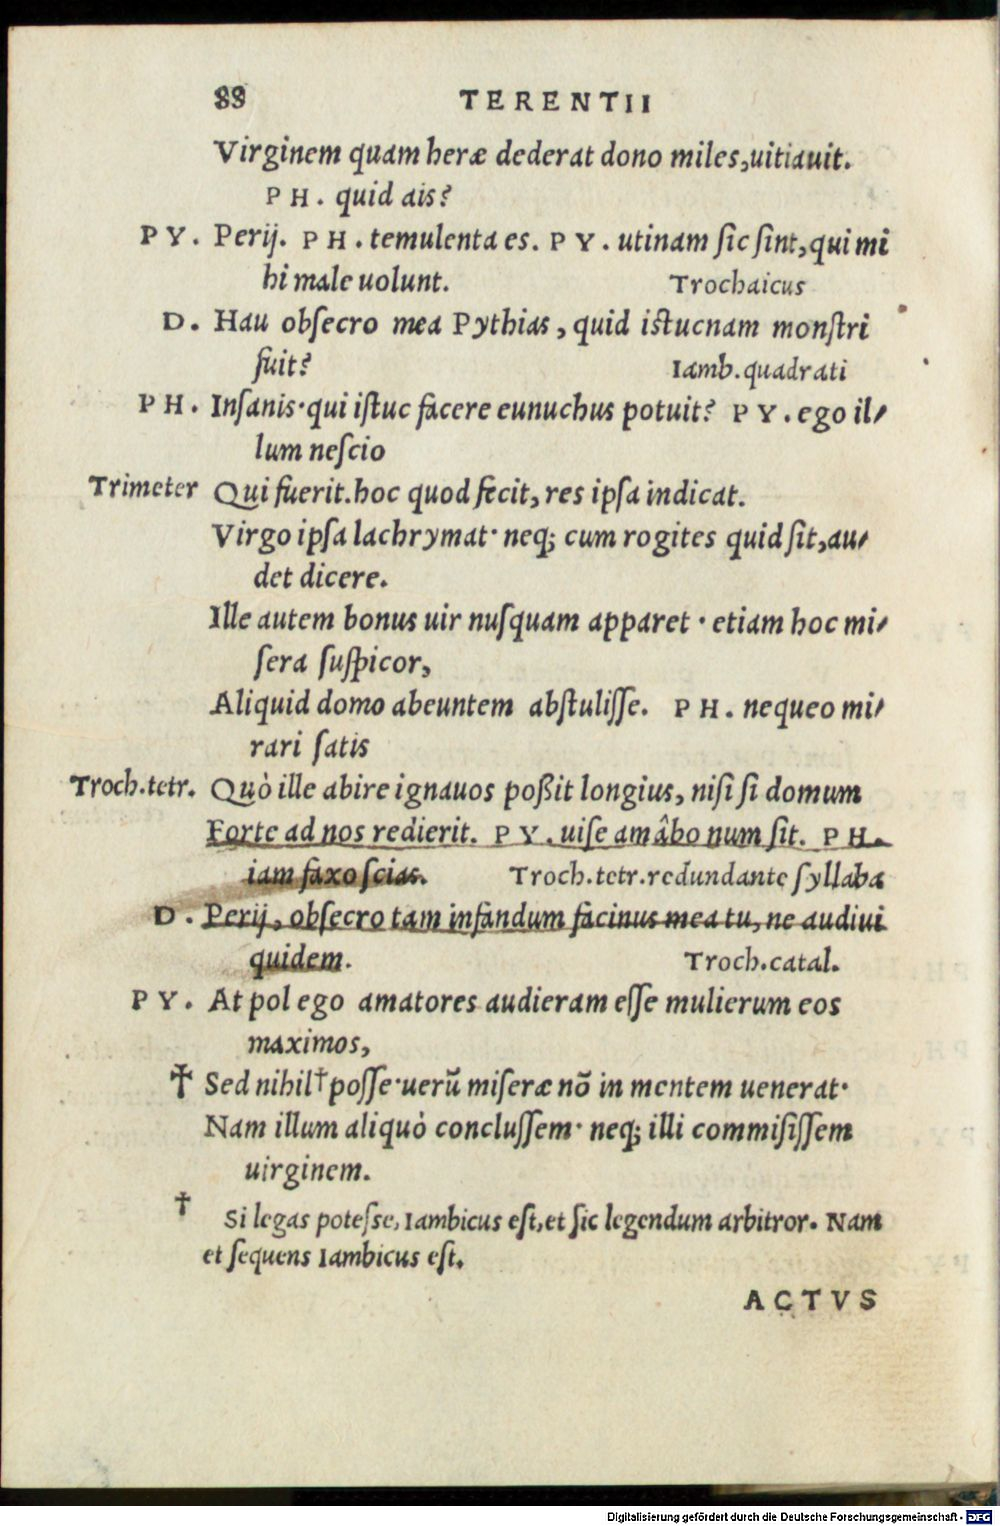 88 TERENTII
Virginem quam heræ dederat dono miles,uitiauit.
PH. quid ais?
PY. Perij. PH. temulenta es. PY. utinam ſic ſint,qui mi
hi male uolunt. Trochaicus
D. Hau obſecro mea Pythias, quid iſtucnam monſtri
fuit? Iamb.quadrati
PH. Inſanis·qui iſtuc facere eunuchus potuit? PY. ego il⸗
lum neſcio
Trimeter Qui fuerit.hoc quod fecit, res ipſa indicat.
Virgo ipſa lachrymat· neq; cum rogites quid ſit,au⸗
det dicere.
Ille autem bonus uir nuſquam apparet · etiam hoc mi⸗
ſera ſuſpicor,
Aliquid domo abeuntem abſtuliſſe. PH. nequeo mi⸗
rari ſatis
Troch.tetr. Quò ille abire ignauos poßit longius, niſi ſi domum
Forte ad nos redierit. PY. uiſe amâbo num ſit. PH.
iam faxo ſcias. Troch.tetr.redundante ſyllaba
D. Perij, obſecro tam infandum facinus mea tu, ne audiui
quidem. Troch.catal.
PY. At pol ego amatores audieram eſſe mulierum eos
maximos,
☨ Sed nihil†poſſe·uerũ miſeræ nõ in mentem uenerat·
Nam illum aliquò concluſſem· neq; illi commiſiſſem
uirginem.
† Si legas poteſse, Iambicus eſt,et ſic legendum arbitror. Nam
et ſequens Iambicus eſt.
ACTVS
Digitalisierung gefördert durch die Deutsche Forschungsgemeinschaft - DFG